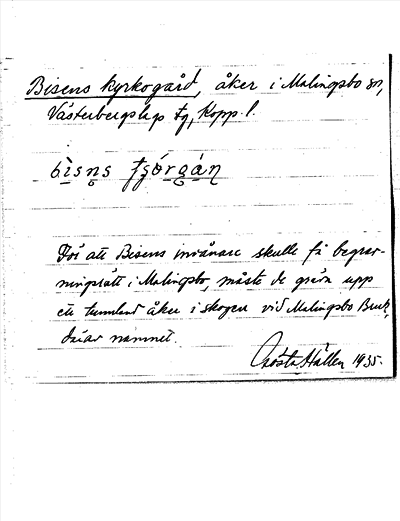 Bisens kyrkogård, åker i Malingsbo sn,
Västerbergslags fg, Kopp. l.
bisns
För att Bisens invånare skulle få begrav-
ningsrätt i Malingsbo, måste de gräva upp
ett tunnland åker i skogen vid Malingsbo Bruk,
därav namnet.
Gösta Hållen 1935.